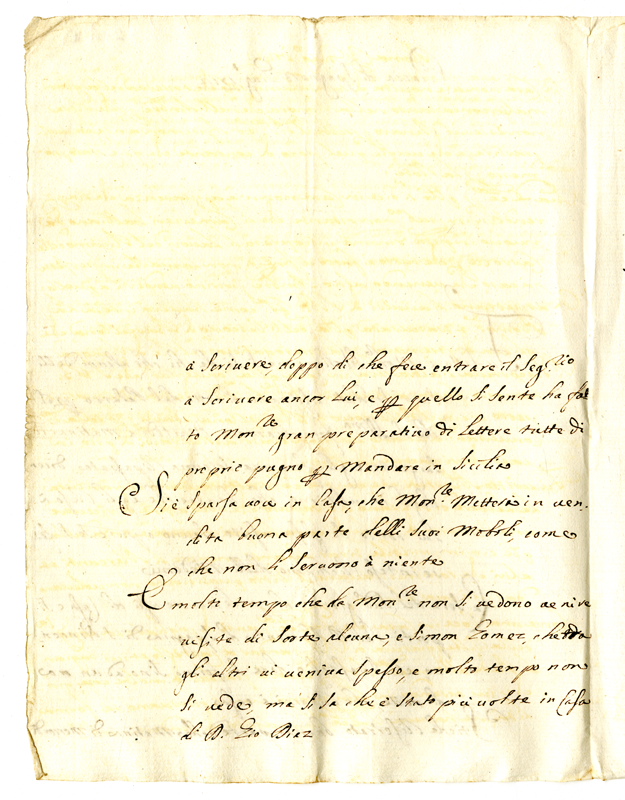 a Scrivere doppo di che fece entrare il Seg.rio
a Scrivere ancor Lui, e p quello si sente ha fat
to Mon.re gran preparativo di Lettere tutte di
proprio pugno p Mandare in Sicilia
Si è sparsa voce in Casa, che Mon.re Metterà in ven-
dita buona parte delli suoi Mobili, come
che non li servono à niente
È molto tempo che da Mon.re non si vedono venire
visite di sorte alcuna, e Simon Gomez, che tra
gli altri vi veniva spesso, e molto tempo non
si vede, ma si sa che è stato più volte in Casa
di D. Gio Diaz